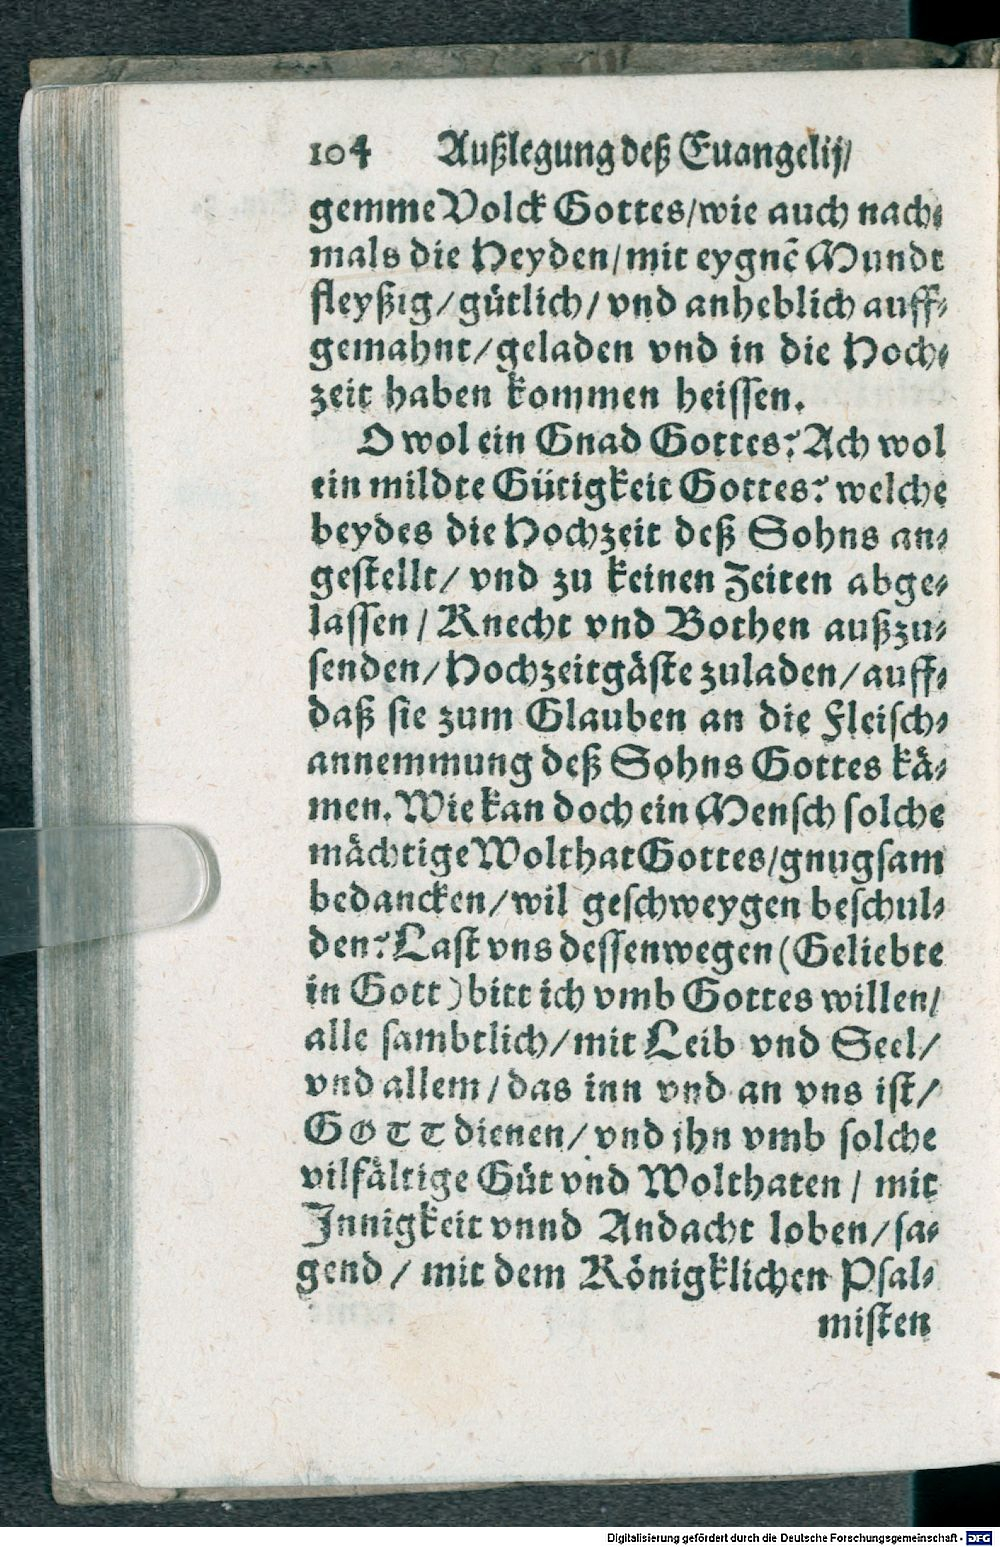 104 Außlegung deß Euangelij/
gemme Volck Gottes/wie auch nach⸗
mals die Heyden/mit eygnē Mundt
fleyßig/gütlich/ vnd anheblich auff⸗
gemahnt/geladen vnd in die Hoch⸗
zeit haben kommen heissen.
O wol ein Gnad Gottes? Ach wol
ein mildte Gütigkeit Gottes? welche
beydes die Hochzeit deß Sohns an⸗
gestellt/ vnd zu keinen Zeiten abge⸗
lassen/ Knecht vnd Bothen außzu⸗
senden/Hochzeitgäste zuladen/auff⸗
daß sie zum Glauben an die Fleisch⸗
annemmung deß Sohns Gottes kä⸗
men. Wie kan doch ein Mensch solche
mächtige Wolthat Gottes/gnugsam
bedancken/wil geschweygen beschul⸗
den? Last vns dessenwegen (Geliebte
in Gott) bitt ich vmb Gottes willen/
alle sambtlich/mit Leib vnd Seel/
vnd allem/das inn vnd an vns ist/
GOTT dienen/vnd jhn vmb solche
vilfältige Güt vnd Wolthaten/ mit
Innigkeit vnnd Andacht loben/sa⸗
gend/ mit dem Königklichen Psal⸗
misten
Digitalisierung gefördert durch die Deutsche Forschungsgemeinschaft - DFG